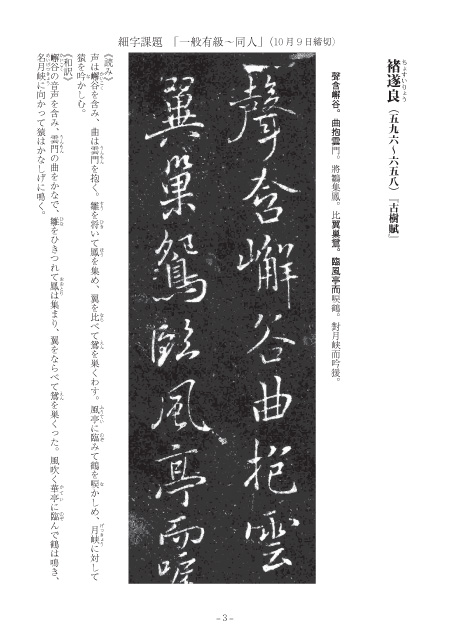 細字課題 「一般有級～同人」(10月9日締切)
褚遂良(五九六～六五八)『古樹賦』
ちょすいりょう
聲含嶰谷。曲抱雲門。將鶵集鳳。比翼巢鴛。臨風亭而唳鶴。對月峡而吟猨。
聲含嶰谷曲抱雲
翼巢鴛臨風亭而唳
《読み》
声は嶰谷を含み、曲は雲門を抱く。雛を将いて鳳を集め、翼を比べて鴛を巣くわす。風亭に臨みて鶴を唳かしめ、月峡に対して
猿を吟かしむ。
《和訳》
嶰谷の音声を含み、雲門の曲をかなで、雛をひきつれて鳳は集まり、翼をならべて鴛を巣くった。風吹く華亭に臨んで鶴は鳴き、
名月峡に向かって猿はかなしげに鳴く。
－3－